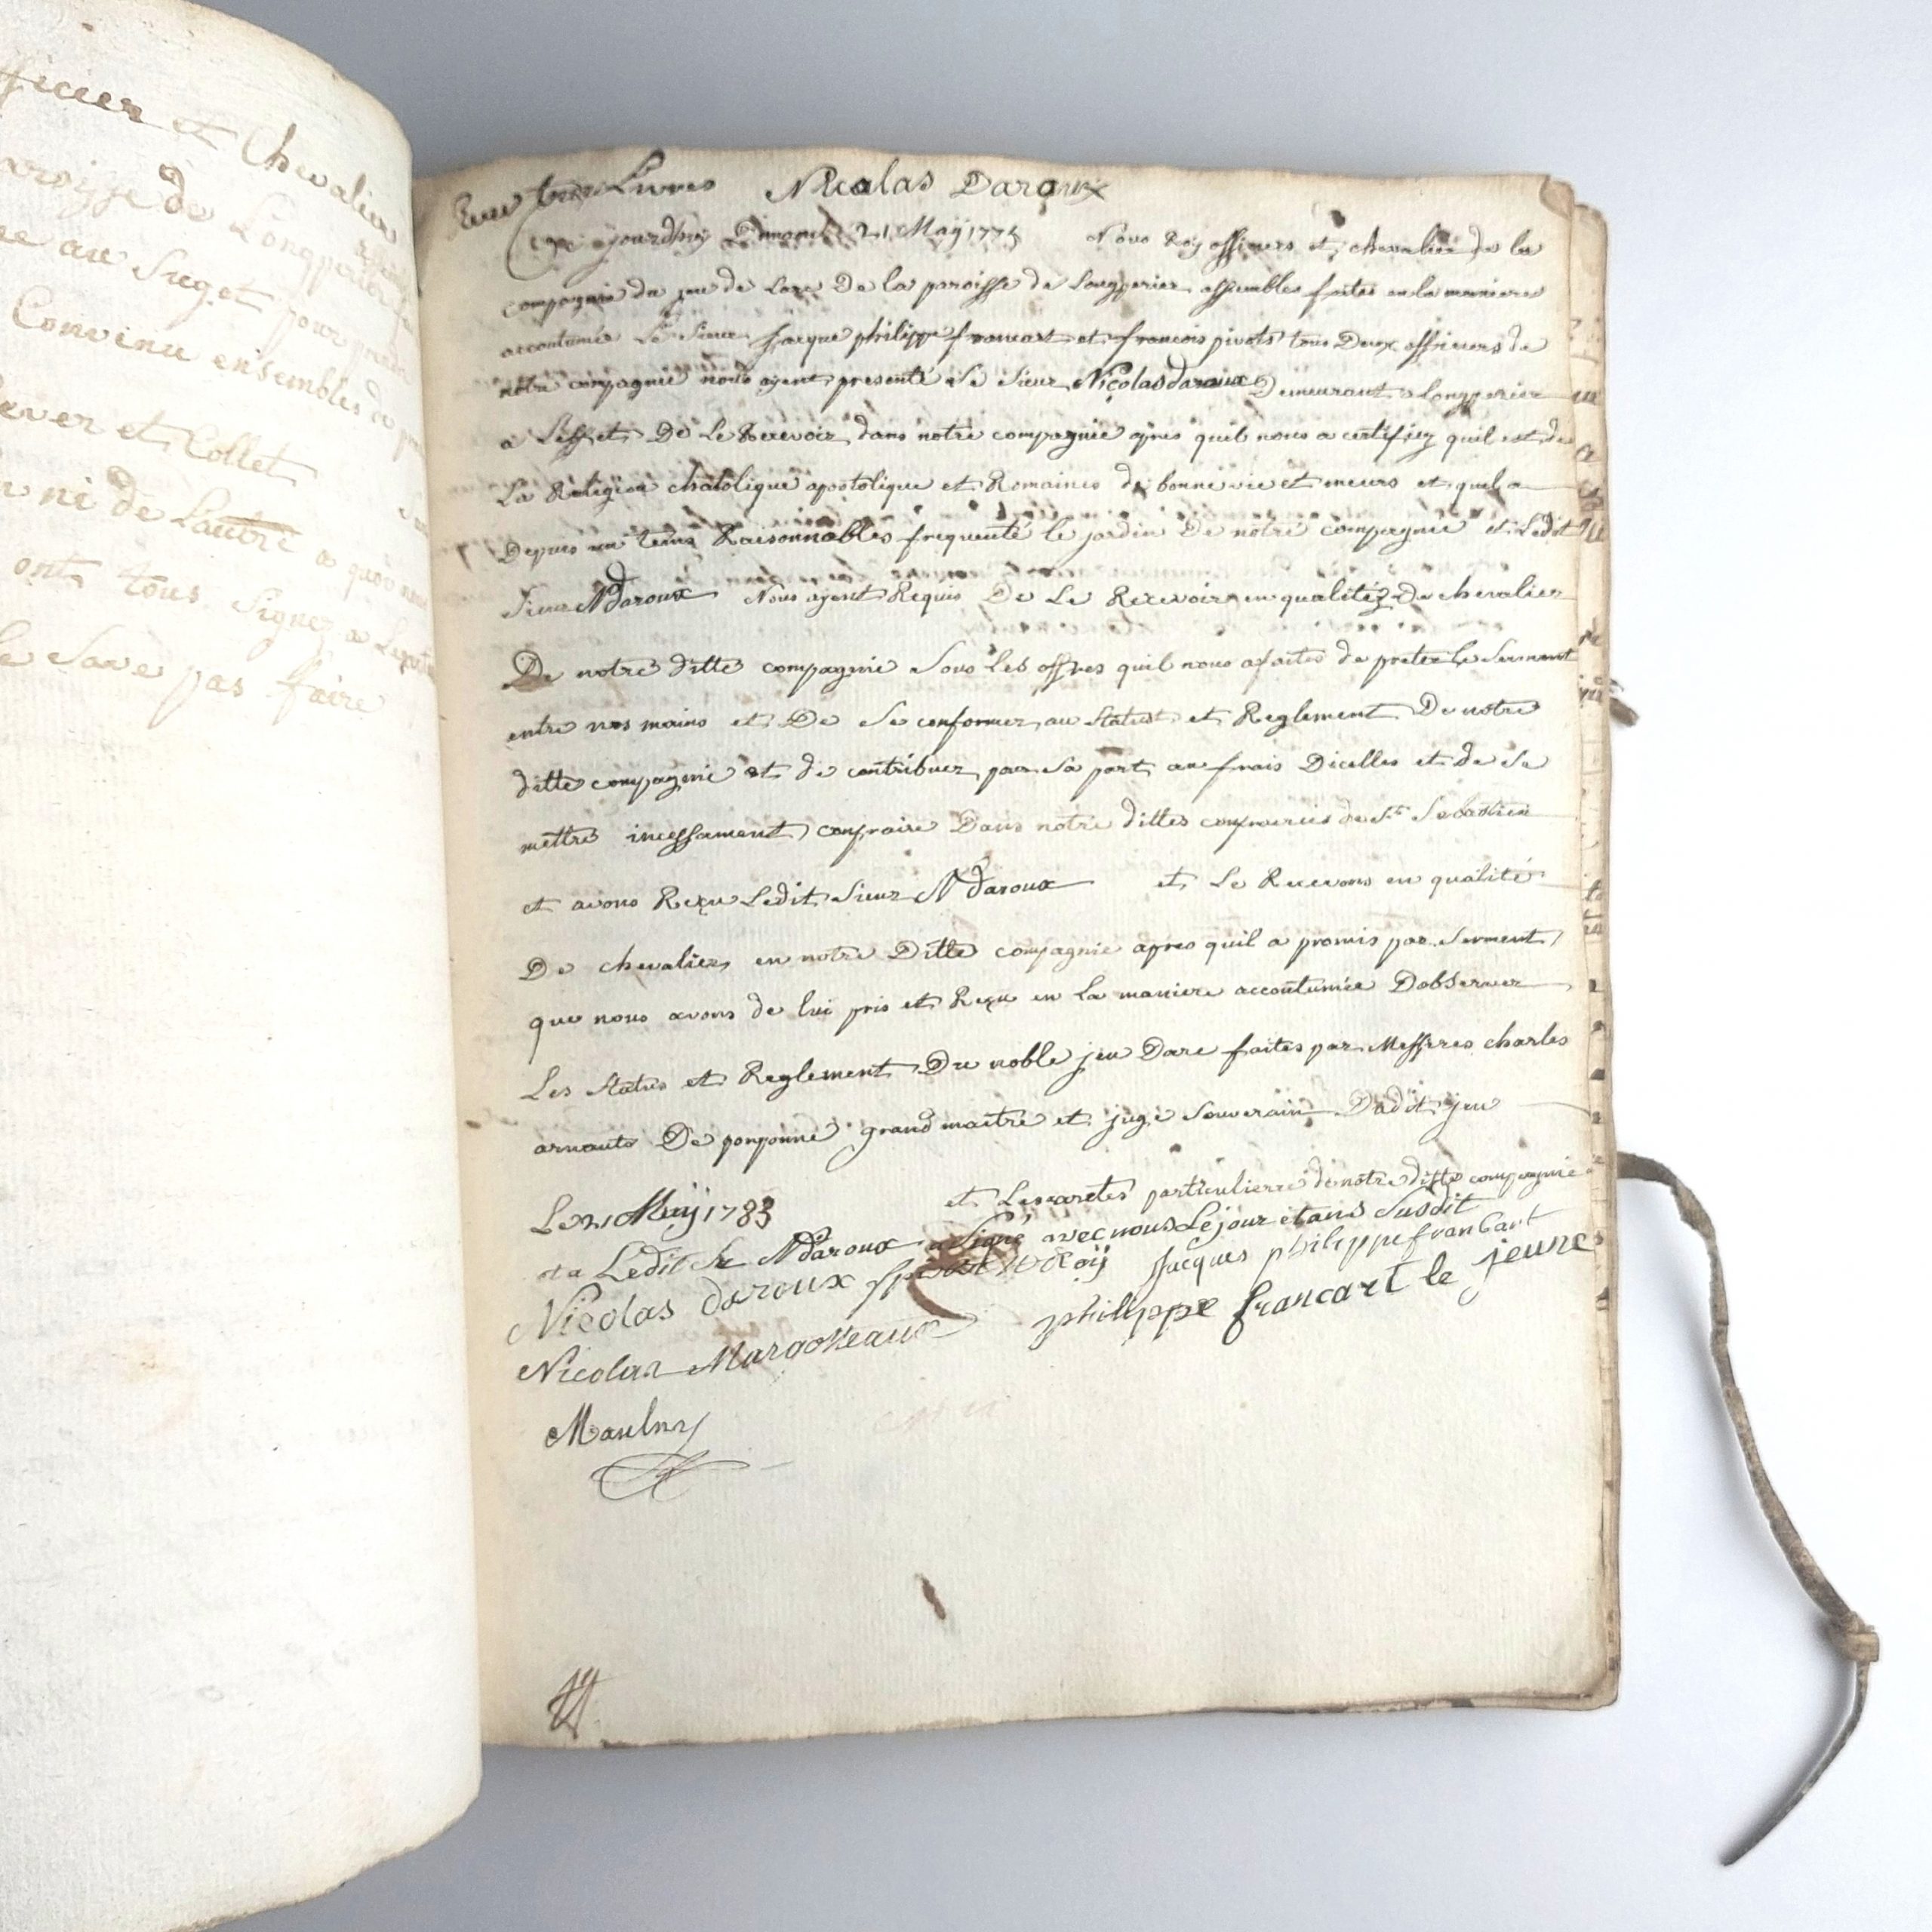 fficier et Chevalier
paroisse de Longperier
au Suget pour
Convinu ensembles de
ever et Collet
ni de Lautre a quoy
ont tous Signez a
le Save pas faire
Livres Nicolas Daroux
jourdhuy Dimanche 21 Maÿ 1775 Nous Roy officiers et chevalier de la
compagnie du jeu de Larc De la paroisse de Longperier assembles faites en la maniere
accoutumée Le Sieur jacque philippe francart et francois pivots tous Deux officiers de
notre compagnie nous ayent presenté Le Sieur Nicolas daroux Demeurant a Longperier
a Leffet De Le Recevoir dans notre compagnie apres quil nous a certifiez quil est de
La Religion chatolique apostolique et Romaines de bonne vie et meurs et quil a
Depuis un tems Raisonnables frequenté le jardin De notre compagnie et Ledit
Sieur N daroux Nous ayent Requis De Le Recevoir en qualitéz De chevalier
De notre ditte compagnie Sous Les offres quil nous a faites de preter Le Serment
entre nos mains et De Se conformer au Statust et Reglement De notre
ditte compagnie et de contribuer par Sa part au frais Dicelles et de Se
mettre incessament confraire Dans notre dittes confraeries de St Sebastien
et avons Reçu Ledit Sieur N daroux et Le Recevons en qualité
De chevalier en notre Ditte compagnie apres quil a promis par Serment
que nous avons de lui pris et Reçu en la maniere accoutumée Dobserver
Les Status et Reglement Du noble jeu Darc faites par Messires charles
arnauts De ponponne grand maitre et juge Souverain Dudit jeu
Le 21 Maÿ 1783 et Les aretés particulierre de notre ditte compagnie
et a Ledit Sr N daroux a Signé avec nous Le jour et ans Susdit
Nicolas daroux Roÿ Jacques philippe francart
Nicolas Margotteaux philippe francart le jeune
Maulny